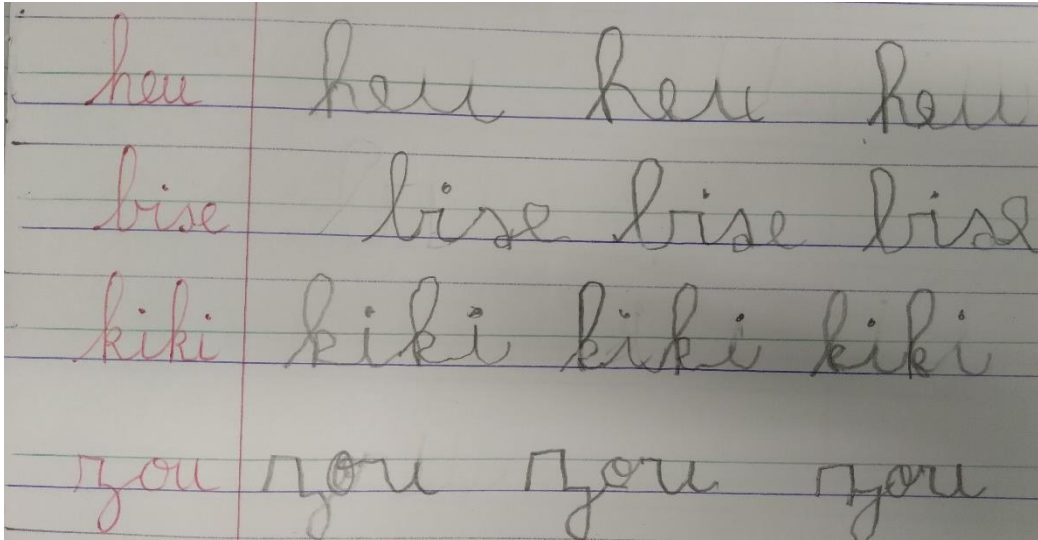 heu heu heu heu
bise bise bise bise
kiki kiki kiki kiki
zou zou zou zou